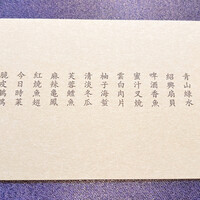 青山綠水
紹興扇貝
啤酒香魚
蜜汁叉燒
雲白肉片
柚子海蜇
清淡冬瓜
芙蓉鱧魚
麻辣龜鳳
紅燒魚翅
今日時菜
脆皮鵪鶉